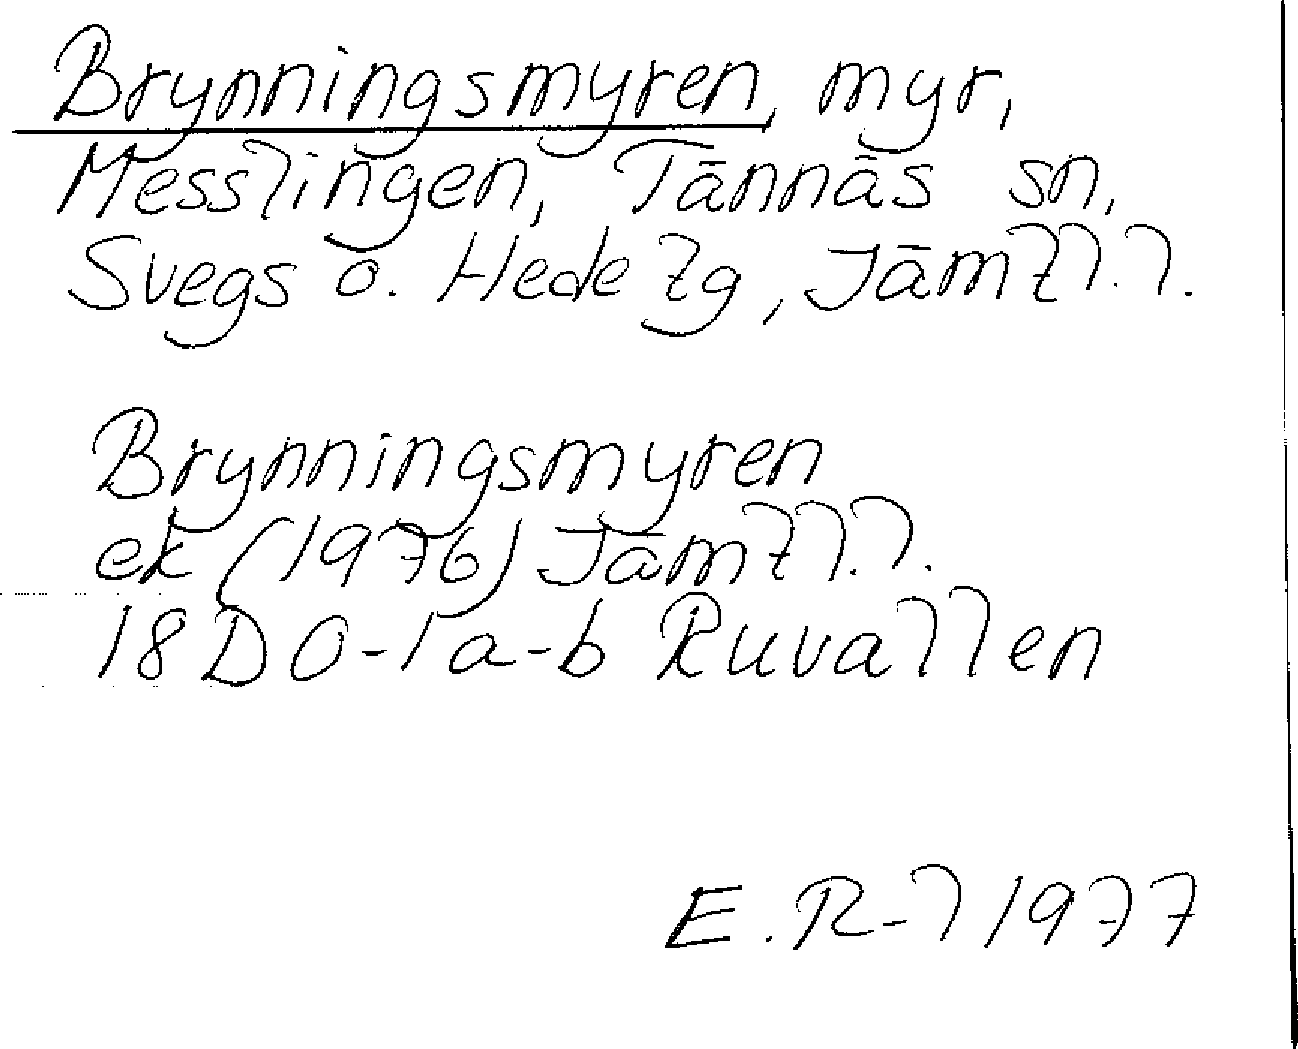 Brynningsmyren, myr,
Messlingen, Tännäs sn,
Svegs o. Hede tg, Jämtl.l.
Brynningsmyren
ek (1976) Jämtl.l.
18D 0-1 a-b Ruvallen
E.R-l 1977